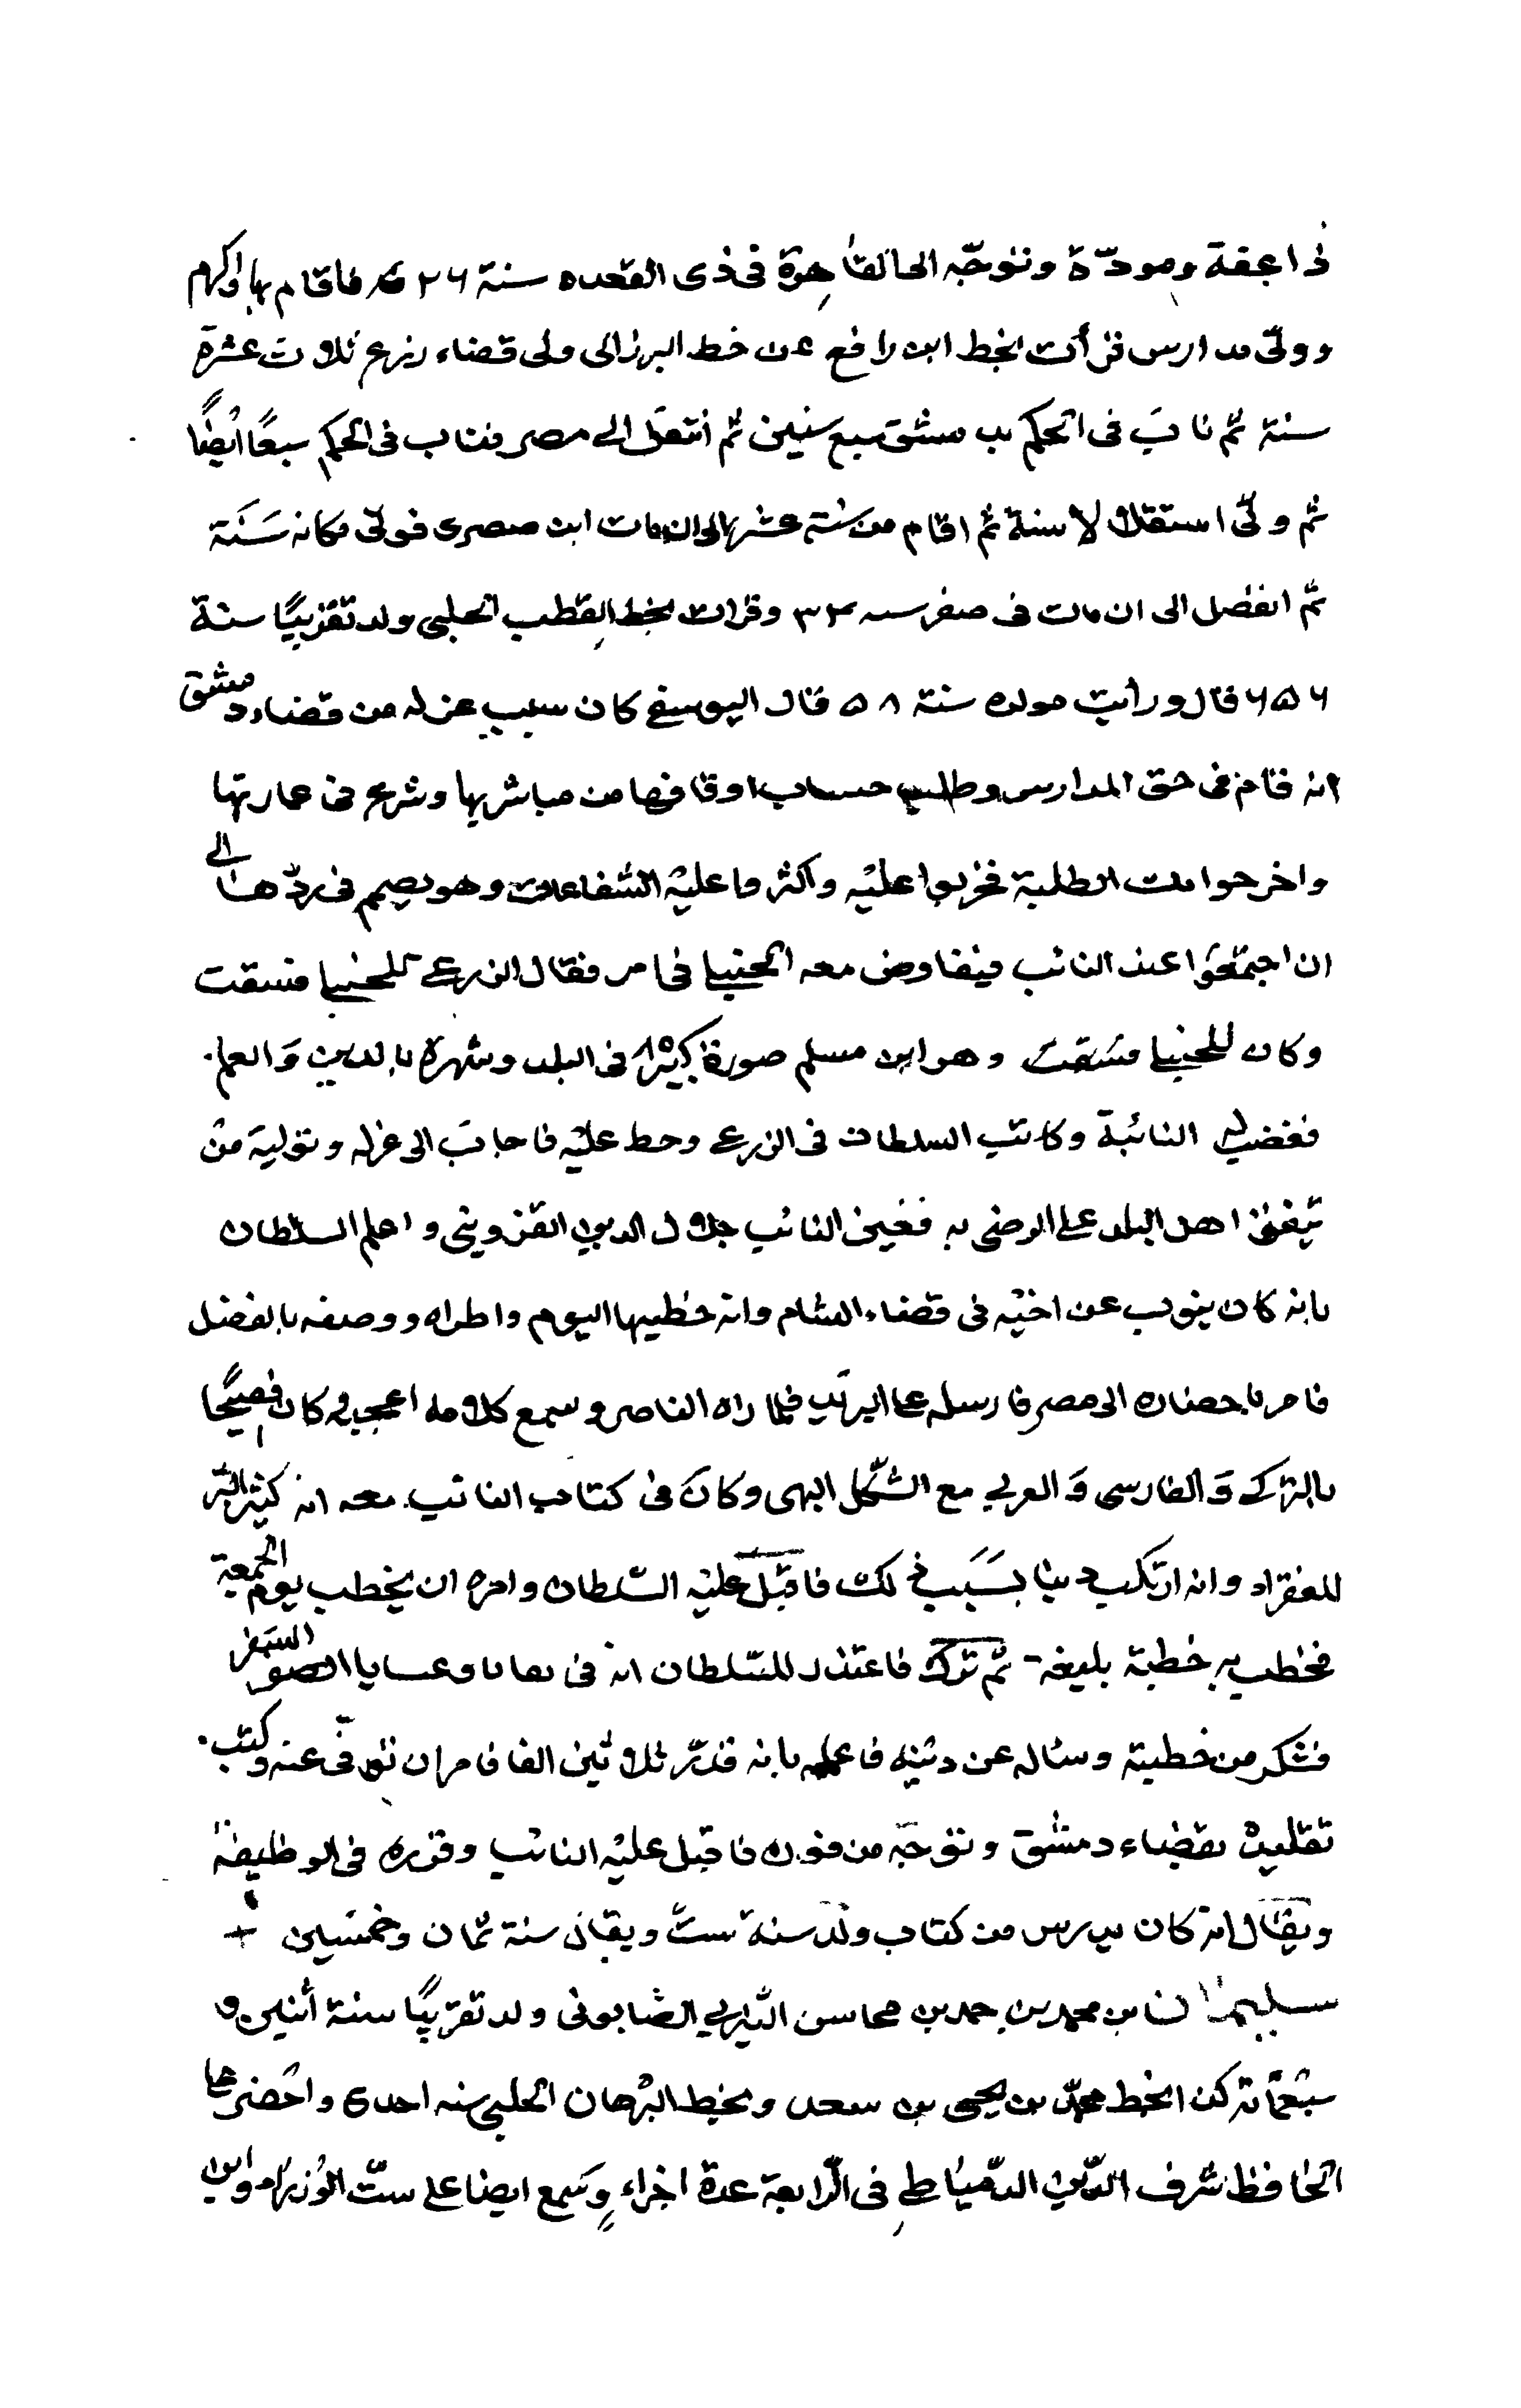 ذا عفة ومودّة وتوجّه الى القاهرة فى ذى القعده سنة ٧٢٦ فاقام بها واكرم
وولّى مدارس قرأت بخط ابن رافع عن خط البرزالى ولى قضاء زرع ثلاث عشرة
سنة ثم نابَ فى الحكم بدمشق سبع سنين ثم انتقل الى مصر فناب فى الحكم سبعًا ايضًا
ثم ولّى استقلالا سنة ثم اقام من سنة عشر الى ان مات ابن صصرى فولى مكانه سَنَة
ثم انفصل الى ان مات فى صفر سنه ٣٤ وقرات بخط القطب الحلبى ولد تقريبًا سنة
٦٥٦ قال ورأيت مولده سنة ٥٨ قال اليوسفى كان سبب عزله من قضاء دمشق
انه قام فى حق المدارس وطلب حساب اوقافها من مباشريها وشرع فى عمارتها
واخر جوامك الطلبة فتحزبوا عليه واكثروا عليه الشفاعات وهو يصمم فى ردّها الى
ان اجتمعوا عند النائب فتفاوض معه الحنبلى فى امر فقال الزرعى للحنبلى فسقت
وكان للحنبلى فسقت وهو ابن مسلم صورة كبيرة فى البلد وشهرة بالدين وَالعلم
فغضب له النائبة وكاتب السلطان فى الزرعى وحط عليه فاجابَ الى عزله وتولية من
يتفق اهل البلد على الرضى به فعين النائب جلال الدين القزوينى واعلم السلطان
بانه كان ينوب عن اخيه فى قضاء الشام وانه خطيبها اليوم واطراه ووصفه بالفضل
فامر باحضاره الى مصر فارسله على البريد فلما راه الناصر وسمع كلامه اعجبه وكان فصيحًا
بالتركى وَالفارسى وَالعربى مع الشّكل البهى وكانَ فى كتاب النائب معه انه كثير البرّ
للفقراء وانه ارتكب دينا بسَبَب ذلك فاقبل عليه السّلطان وامره ان يخطب يوم الجمعة
فخطب به خطبة بليغة ثم نزل فاعتذر للسّلطان انه فى بقايا وعسايا السفر
فشكر من خطبة وساله عن دينه فاعلمه بانه قدر ثلاثين الفا فامر ان توفى عنه وكتب
تقليده بقضاء دمشق وتوجّه من فوره فاقبل عليه النائب وقرره فى الوظيفة
ويقال انه كان يدرس من كتاب ولد سنة ستّ ويقال سنة ثمان وخمسين
سليمان بن محمد بن حمد بن محاسن النيربى الصابونى ولد تقريبًا سنة اثنين و
سبعمائة كذا بخط محمّد بن يحيى بن سعد وبخط البرهان الحلبى سنه احدى واحضر على
الحافظ شرف الدّين الدّمياطى فى الرّابعة عدة اجزاء وسَمع ايضا على ستّ الوُزراء وابن